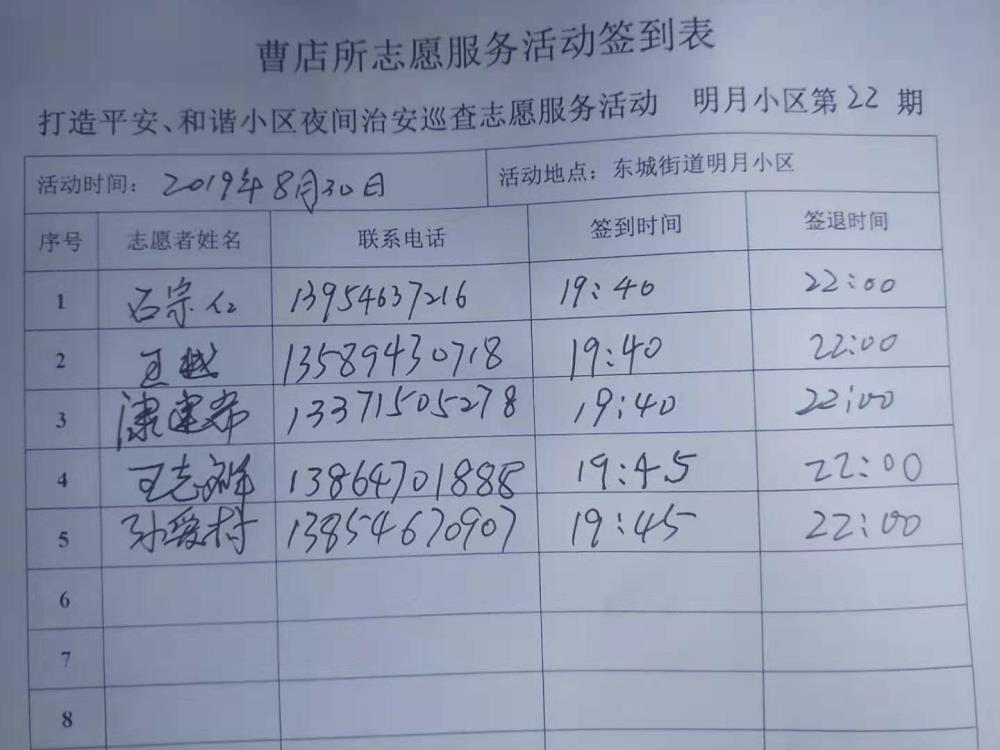 曹店所志愿服务活动签到表
打造平安、和谐小区夜间治安巡查志愿服务活动 明月小区第22期
活动时间：2019年8月30日 活动地点：东城街道明月小区
序号 志愿者姓名 联系电话 签到时间 签退时间
1 石宗仁 13954637216 19:40 22:00
2 王越 13589430718 19:40 22:00
3 康建希 13371505278 19:40 22:00
4 王志祥 13864701888 19:45 22:00
5 孙爱村 13854670907 19:45 22:00
6
7
8